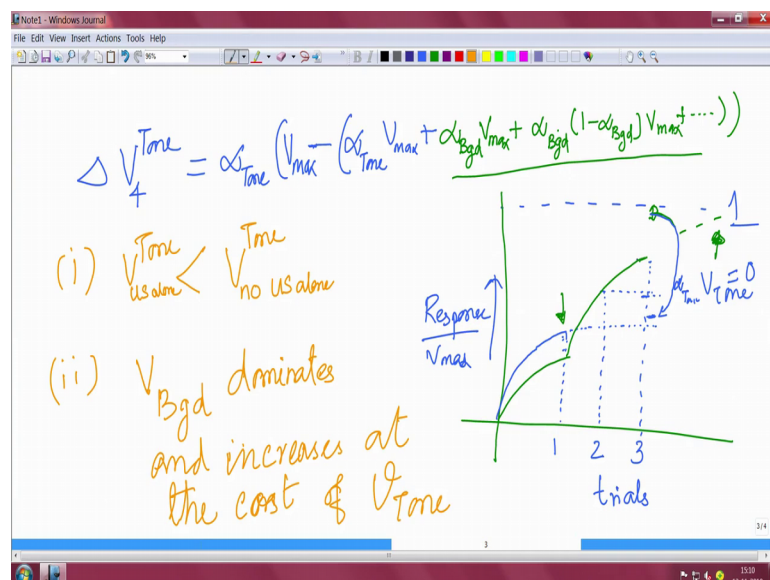 Note1 - Windows Journal
File Edit View Insert Actions Tools Help
96%
B I
Δ V₄^Tone = α_Tone (V_max − (α_Tone V_max + α_Bgd V_max + α_Bgd (1-α_Bgd) V_max + ....))
(i) V_us alone^Tone < V_no us alone^Tone
(ii) V_Bgd dominates
and increases at
the cost of V_Tone
1
V_Tone = 0
Response
V_max
1 2 3
trials
3/4
3
15:10